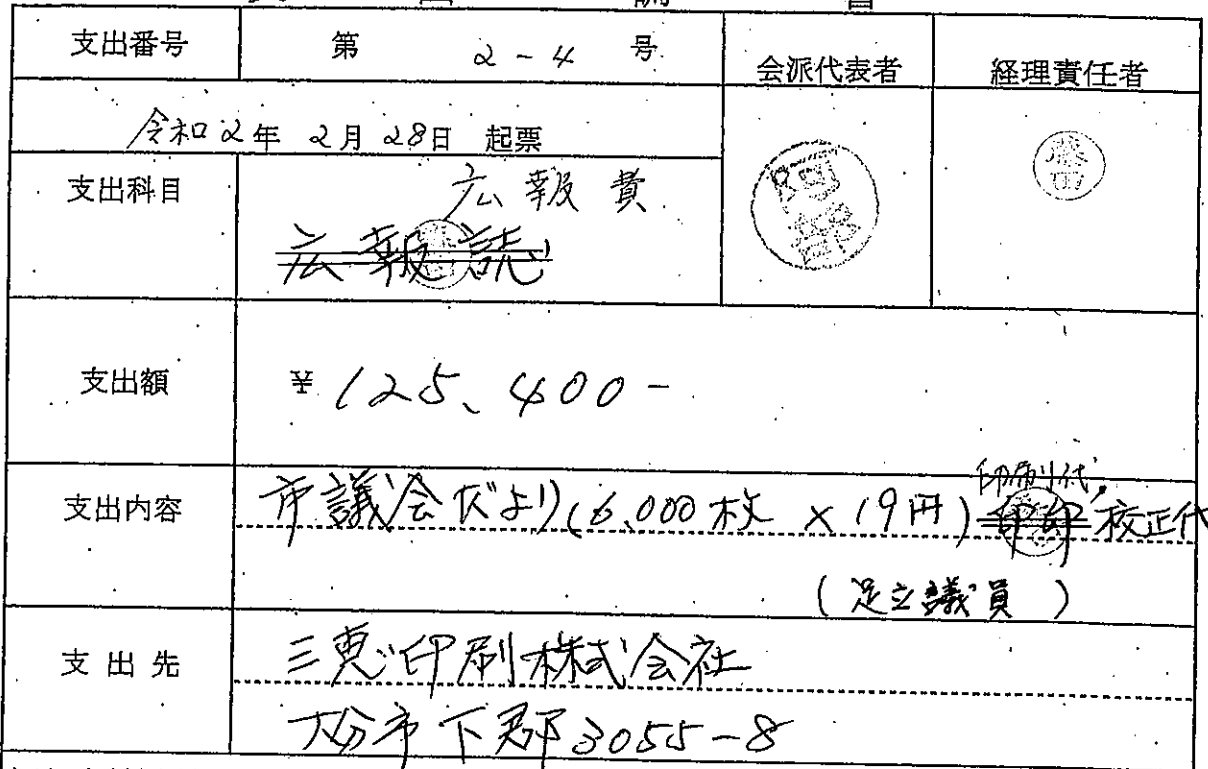 支出番号 第 2-4 号 会派代表者 経理責任者
令和2年 2月 28日 起票
支出科目 広報費
広報誌
阿部
藤田
支出額 ¥125、400-
支出内容 市議会だより(6,000枚 × 19円) 印刷代、校正代
(足立議員)
支出先 三恵印刷株式会社
大分市下郡3055-8